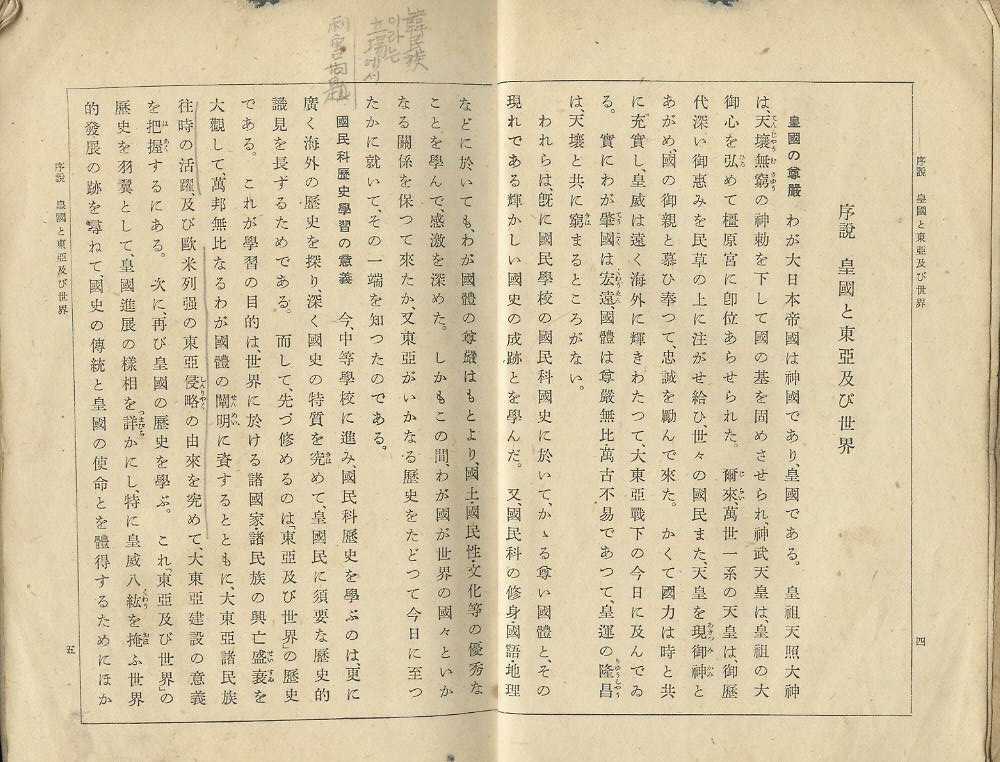 序說　皇國と東亞及び世界
四
序說　皇國と東亞及び世界
皇國の尊嚴　わが大日本帝國は神國であり、皇國である。　皇祖天照大神
は、天壤無窮の神勅を下して國の基を固めさせられ、神武天皇は、皇祖の大
御心を弘めて橿原宮に卽位あらせられた。　爾來、萬世一系の天皇は、御歷
代深い御惠みを民草の上に注がせ給ひ、世々の國民また、天皇を現御神と
あがめ、國の御親と慕ひ奉つて、忠誠を勵んで來た。　かくて國力は時と共
に充實し、皇威は遠く海外に輝きわたつて、大東亞戰下の今日に及んでゐ
る。　實にわが肇國は宏遠、國體は尊嚴無比、萬古不易であつて、皇運の隆昌
は、天壤と共に窮まるところがない。
われらは、旣に國民學校の國民科國史に於いて、かゝる尊い國體と、その
現れである輝かしい國史の成跡とを學んだ。　又、國民科の修身・國語・地理
などに於いても、わが國體の尊嚴はもとより、國土・國民性・文化等の優秀な
ことを學んで、感激を深めた。　しかもこの間、わが國が世界の國々といか
なる關係を保つて來たか、又東亞がいかなる歷史をたどつて今日に至つ
たかに就いて、その一端を知つたのである。
國民科歷史學習の意義　今、中等學校に進み、國民科歷史を學ぶのは、更に
廣く海外の歷史を探り、深く國史の特質を究めて、皇國民に須要な歷史的
識見を長ずるためである。　而して、先づ修めるのは、「東亞及び世界」の歷史
である。　これが學習の目的は、世界に於ける諸國家・諸民族の興亡盛衰を
大觀して、萬邦無比なるわが國體の闡明に資するとともに、大東亞諸民族
往時の活躍、及び歐米列强の東亞侵略の由來を究めて、大東亞建設の意義
を把握するにある。　次に、再び皇國の歷史を學ぶ。　これ、「東亞及び世界」の
歷史を羽翼として、皇國進展の樣相を詳かにし、特に皇威八紘を掩ふ世界
的發展の跡を尋ねて、國史の傳統と皇國の使命とを體得するためにほか
序說　皇國と東亞及び世界
五
韓民族
이라는
立場에서